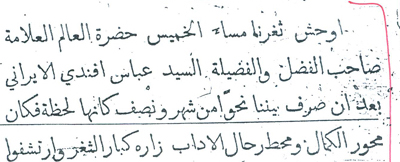 اوحش ثغرنا مساء الخميس حضرة العالم العلامة
صاحب الفضل والفضيلة السيد عباس افندي الايراني
بعد ان صرف بيننا نحوًا من شهر ونصف كانها لحظة فكان
محور الكمال ومحط رحال الاداب زاره كبار الثغر وارتشفوا